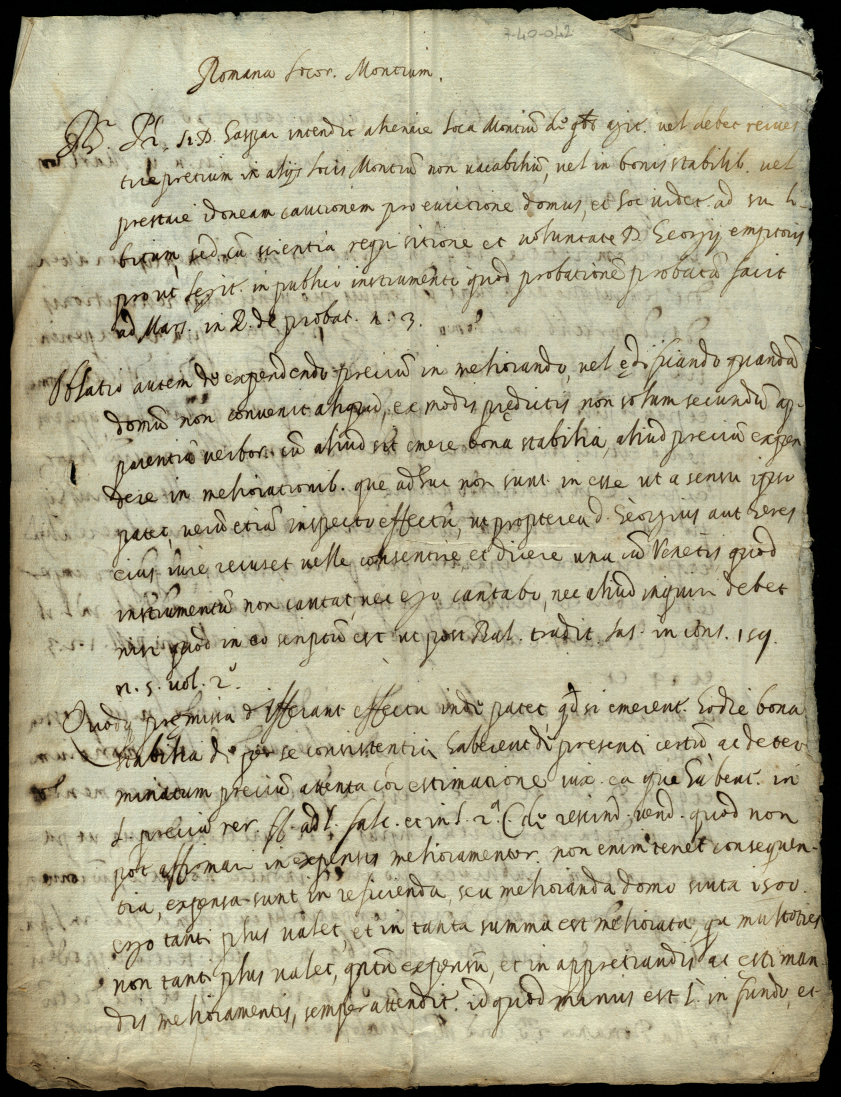 7-40-042
Romana Locor. Montium.
Si D. Gaspar intendit alienare loca Montiũ de qbs agit. vel debet reives
tire pretium in alijs locis Montiũ non vacabiliũ, vel in bonis stabilib. vel
prestare idoneam cautionem pro evictione domus, et hoc videt. ad sui li-
bitum, sed cũ scientia requisitione et voluntate D. Georgij emptoris
prout legit. in publico instrumento quod probationẽ probatã facit
ad Mars. in R. de probat. n. 3.
Oblatio autem de expendendo preciũ in meliorando, vel ędificando quandã
domũ non convenit aliquid, ex modis prędictis non solum secundũ ap-
parentiã verbor. cũ aliud sit emere bona stabilia, aliud preciũ expen
dere in meliorationib. que adhuc non sunt in esse ut a sensu ipso
patet, verũ etiã inspecto effectu, ut propterea d. Georgius aut heres
eius iure recuset velle consentire, et dicere una cũ Venetis quod
instrumentũ non cantat, nec ego cantabo, nec aliud inquiri debet
nisi quod in eo scriptũ est ut post Bal. tradit Ias. in cons. 159.
n. 5. vol. 2º.
Quodq; premissa differant effectu inde patet, qd si emerent. hodie bona
stabilia de per se consistentia haberent de presenti certũ ac deter
minatum preciũ attenta coi estimatione iux. ea que habent. in
l. preciũ rer. ff. ad l. falc. et in l. 2ª C. de rescind. vend. quod non
pot affirmari in expensis melioramentor. non enim tenet consequen-
tia, expensa sunt in reficienda, seu melioranda domo scuta 1500.
ergo tanti plus valet, et in tanta summa est meliorata, qa multoties
non tanti plus valet, qntũ expensũ, et in appretiandis ac estiman-
dis melioramentis, semper attendit. id quod minus est l. in fundo, et